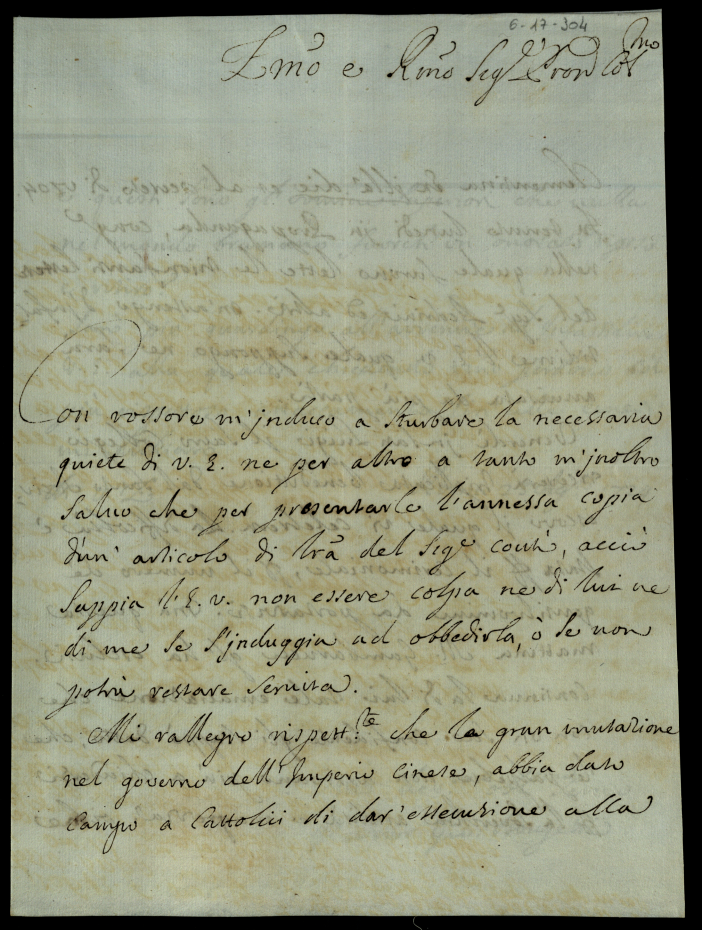 6-17-304
Emõ e Rmõ Sigr. Pron Colmo
Con rossore m'jnduco a sturbare la necessaria
quiete di V. E. ne per altro a tanto m'jnoltro
salvo che per presentarle l'annessa copia
d'un' articolo di lrã del Sigr Conti, acciò
sappia l'E. V. non essere colpa ne di lui ne
di me se s'jnduggia ad obbedirla, ò se non
potrà restare servita.
Mi rallegro rispett.te che la gran mutazione
nel governo dell'Imperio Cinese, abbia dato
campo a Cattolici di dar'essecuzione alla